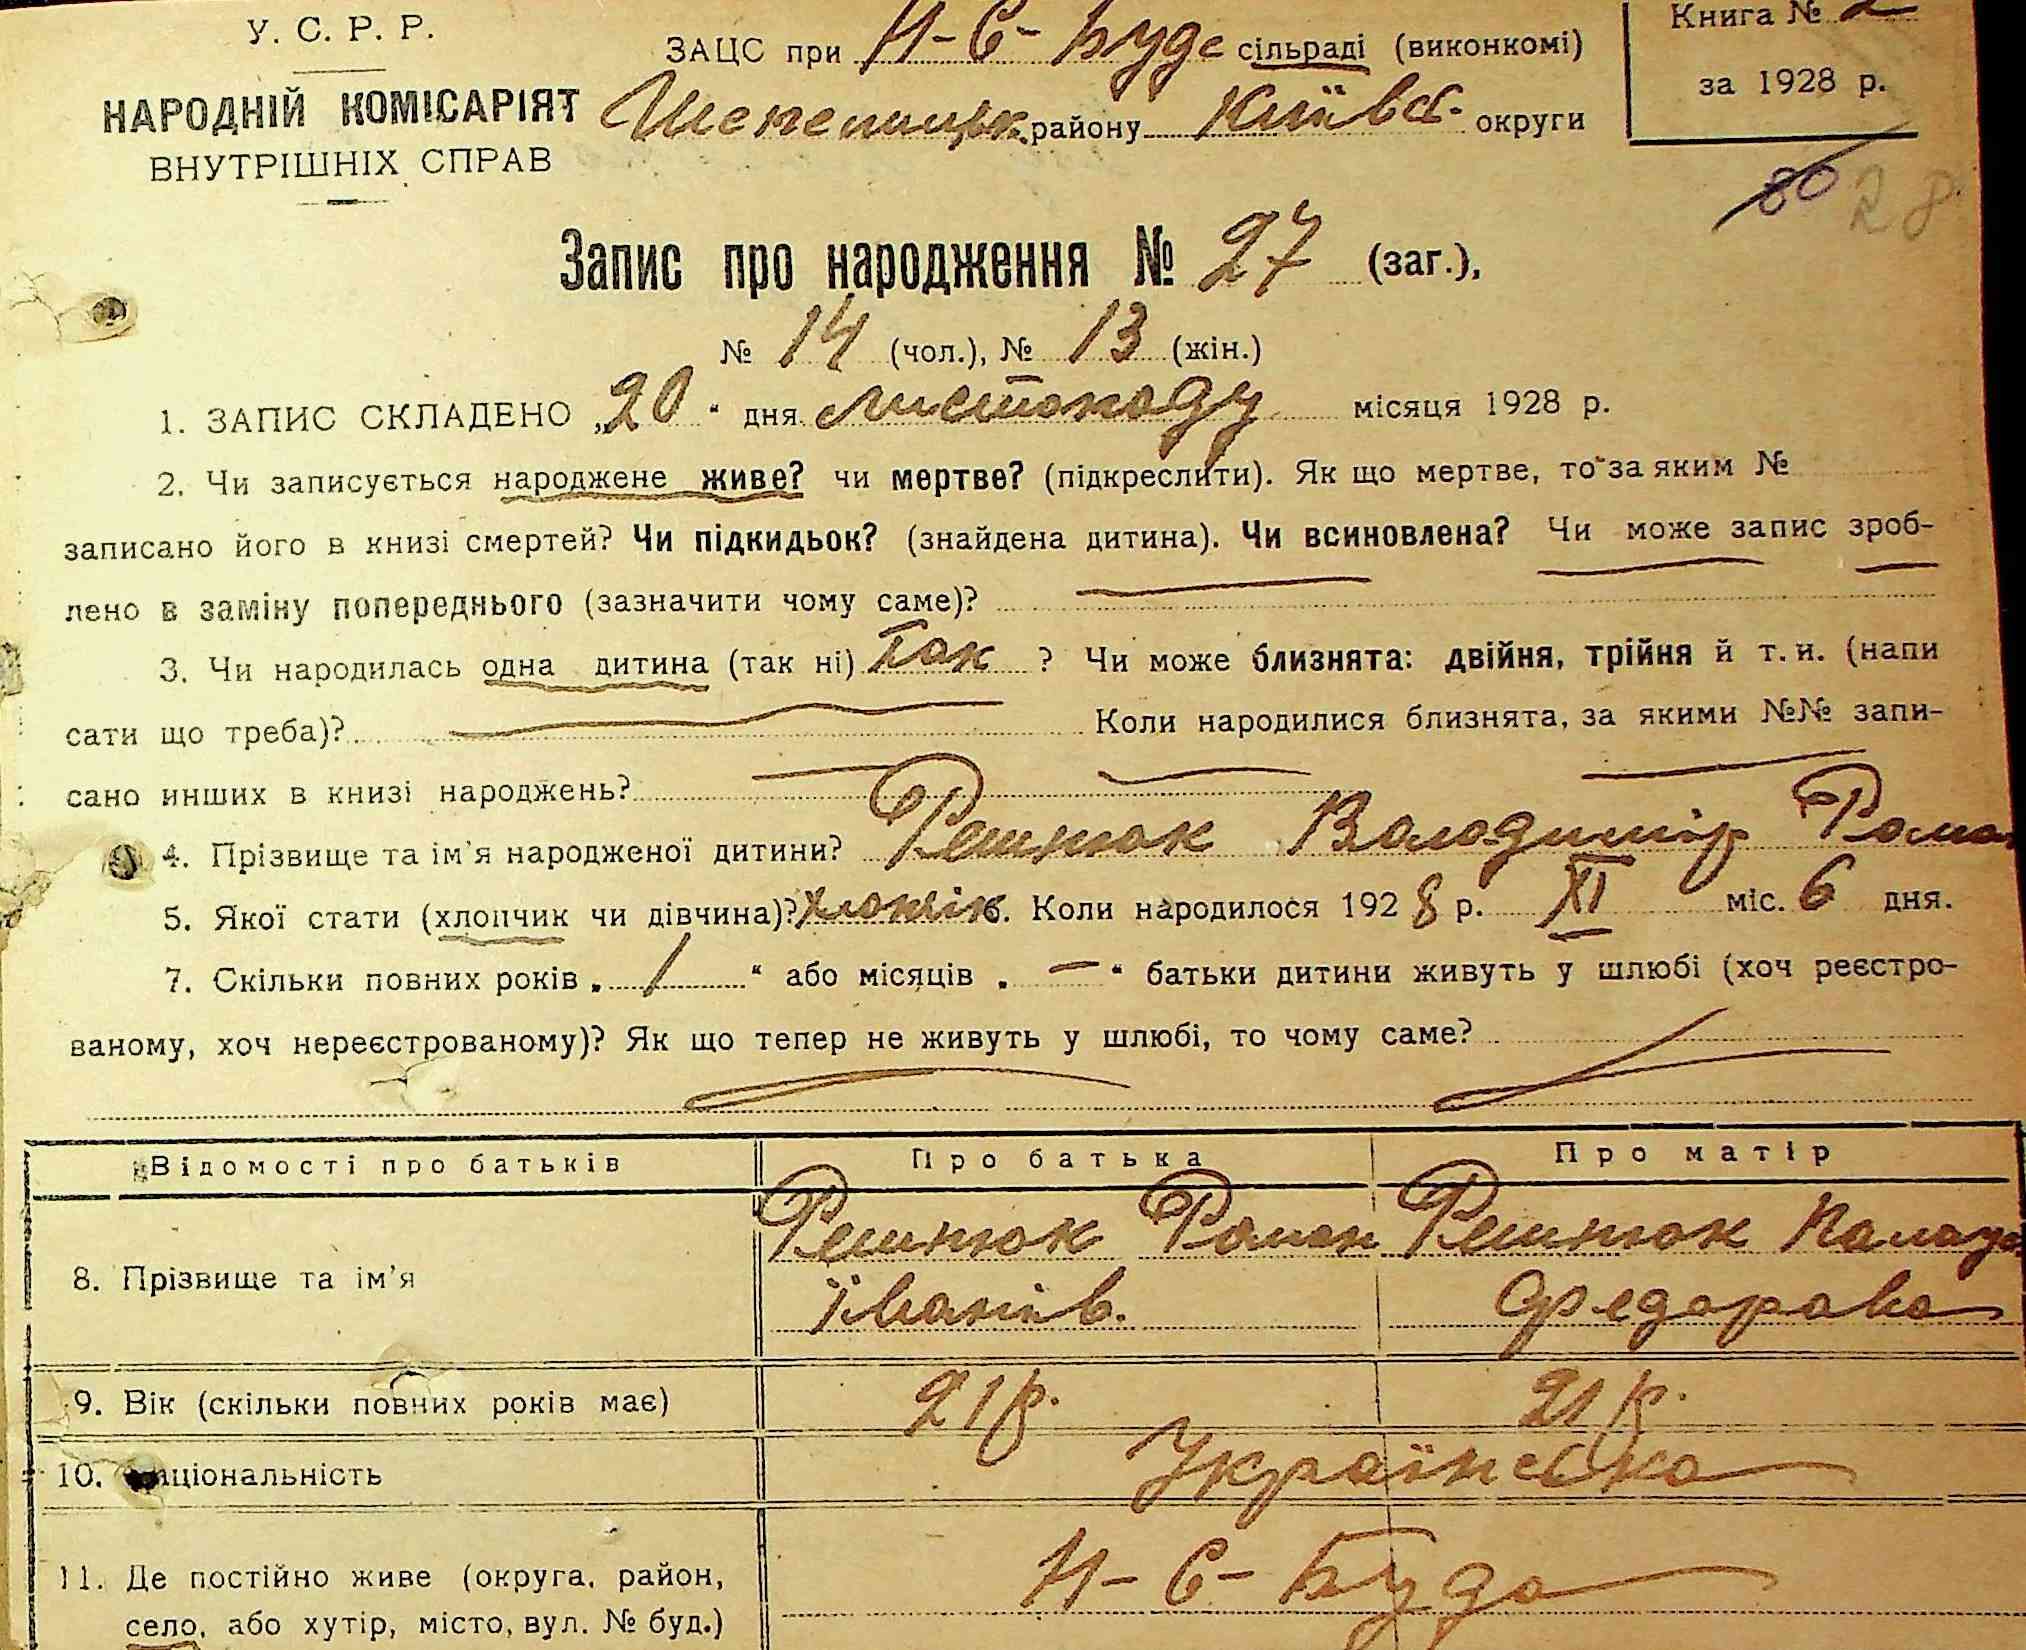 У. С. Р. Р.
НАРОДНІЙ КОМІСАРІЯТ
ВНУТРІШНІХ СПРАВ
ЗАЦС при Н-С-Буде сільраді (виконкомі)
району Київськ. округи
Книга № 2
за 1928 р.
80 28
Запис про народження № 27 (заг.),
№ 14 (чол.), № 13 (жін.)
1. ЗАПИС СКЛАДЕНО „20“ дня листопаду місяця 1928 р.
2. Чи записується народжене живе? чи мертве? (підкреслити). Як що мертве, то за яким №
записано його в книзі смертей? Чи підкидьок? (знайдена дитина). Чи всиновлена? Чи може запис зроб-
лено в заміну попереднього (зазначити чому саме)?
3. Чи народилась одна дитина (так ні) так ? Чи може близнята: двійня, трійня й т. и. (напи
сати що треба)? Коли народилися близнята, за якими №№ запи-
сано инших в книзі народжень?
4. Прізвище та ім'я народженої дитини? Решнюк Володимір Роман
5. Якої стати (хлопчик чи дівчина)? хлопчік 6. Коли народилося 1928 р. XI міс. 6 дня.
7. Скільки повних років „ 1 “ або місяців „ — “ батьки дитини живуть у шлюбі (хоч реєстро-
ваному, хоч нереєстрованому)? Як що тепер не живуть у шлюбі, то чому саме?
Відомості про батьків Про батька Про матір
8. Прізвище та ім'я Решнюк Роман Решнюк
Іванів. Федорова
9. Вік (скільки повних років має) 21 р. 21 р.
10. Національність Українська
11. Де постійно живе (округа, район, Н-С-Буда
село, або хутір, місто, вул. № буд.)